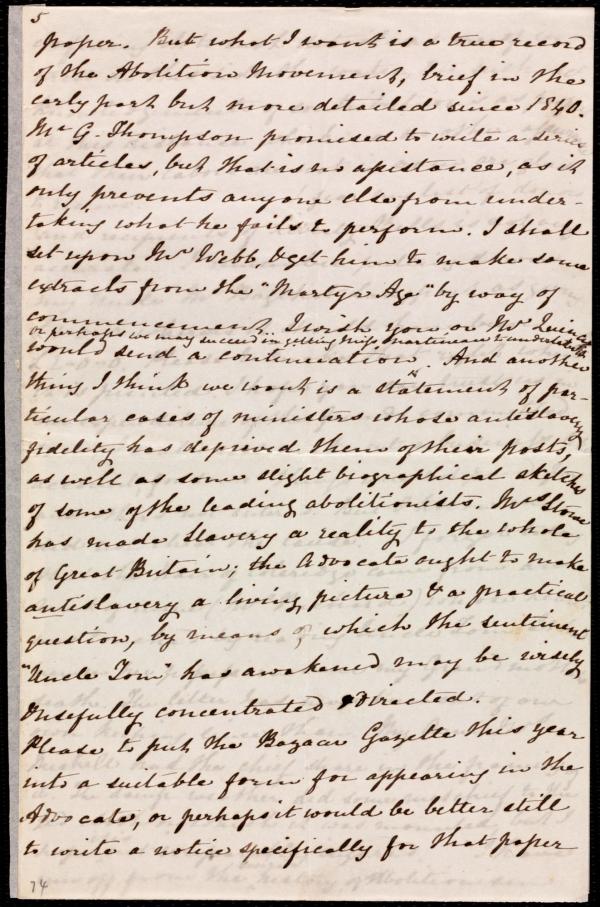 5
paper. But what I want is a true record
of the Abolition Movement, brief in the
early part but more detailed since 1840.
Mr G. Thompson promised to write a series
of articles, but that is no apistance, as it
only prevents anyone else from under-
taking what he fails to perform. I shall
set upon Mr Webb, & get him to make some
extracts from the "Martyr Age" by way of
commencement. I wish you or Mr Quincy
or perhaps we may succeed in getting Miss Martineau to undertake
would send a continuation ^. And another
thing I think we want is a statement of par-
ticular cases of ministers whose antislavery
fidelity has deprived them of their posts,
as well as some slight biographical sketches
of some of the leading abolitionists. Mrs Stowe
has made Slavery a reality to the whole
of Great Britain; the Advocate ought to make
antislavery a living picture & a practical
question, by means of which the sentiment
"Uncle Tom" has awakened may be wisely
& usefully concentrated & directed.
Please to put the Bazaar Gazette this year
into a suitable form for appearing in the
Advocate, or perhaps it would be better still
to write a notice specifically for that paper
74